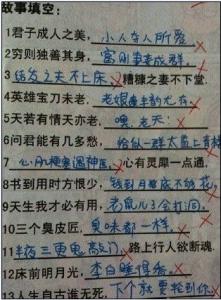 故事填空:
1君子成人之美,小人夺人所爱
2穷则独善其身,富则妻妾成群.
3结发之夫不上床,糟糠之妻不下堂.
4英雄宝刀未老,老娘丰韵尤存.
5天若有情天亦老,嘿.老天
6问君能有几多愁,恰似一群太监上青楼
7心肌梗塞遇神医,心有灵犀一点通.
8书到用时方恨少,钱到月底不够花,
9天生我才必有用,老鼠儿子会打洞.
10三个臭皮匠,臭味都一样.
11半夜三更鬼敲门,路上行人欲断魂.
12床前明月光,李白睡得香.
13人生自古谁无死,下个就要轮到你.